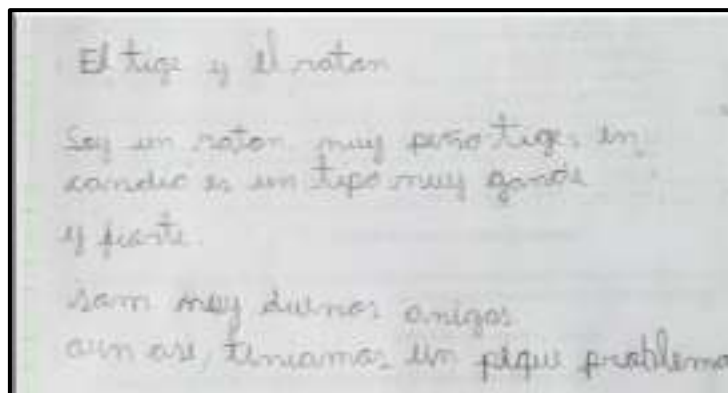 El tige y el raton
Soy un raton muy peño tige, en
candio es un tipo muy gande
y fuarte.
Som mey duenos anigos
aun asi, teniamos un peque problema